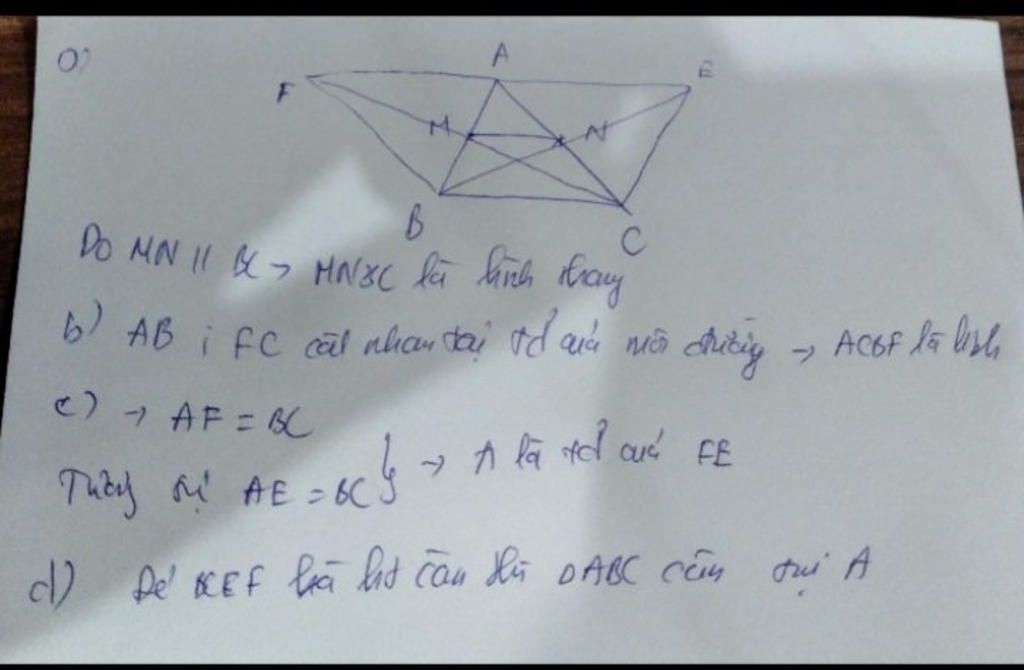 a)
A
E
F
M
N
B
C
Do MN // BC → MNBC là hình thang
b) AB ; FC cắt nhau tại tđ của mỗi đường → ACBF là hbh
c) → AF = BC
Tương tự AE = BC } → A là tđ của FE
d) Để BCEF là ht cân thì △ABC cân tại A